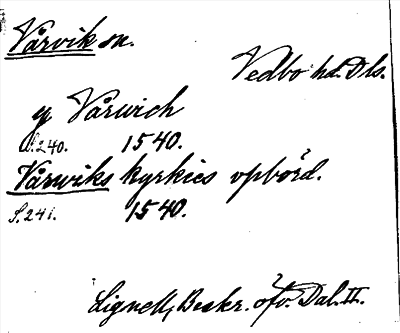 Vårvik sn.
Vedbo hd. Dls.
y Vårwich
S. 240. 1540.
Vårwiks kyrkies vpbörd.
S. 241. 1540.
Lignell, Beskr. öfv. Dal. II.